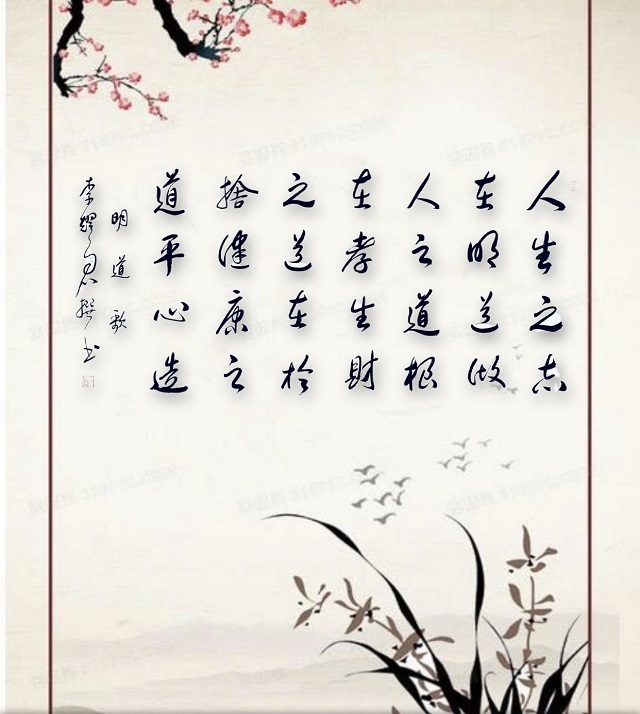 人生之志
在明道做
人之道根
在孝生财
之道在於
捨健康之
道平心造
明道歌
李耀君撰书